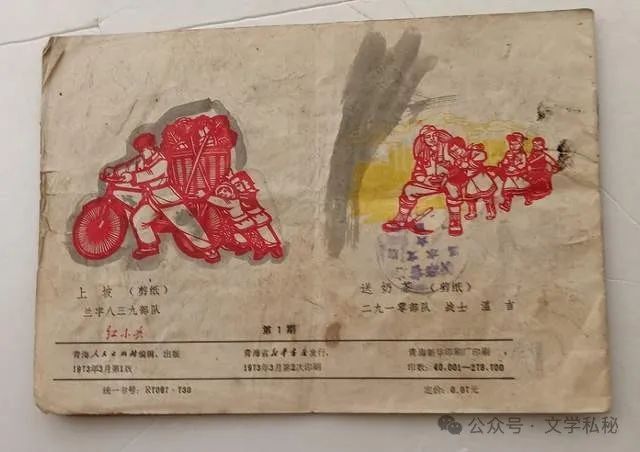 上 坡 （剪纸）
兰字八三九部队
送 奶 茶 （剪纸）
二九一零部队 战士 温 吉
红小兵
第1期
青海人民出版社编辑、出版 青海省新华书店发行 青海新华印刷厂印刷
1973年3月第1版 1973年3月第2次印刷 印数：40,001—278,700
统一书号：R7097·730 定价：0.07元
公众号·文学私秘